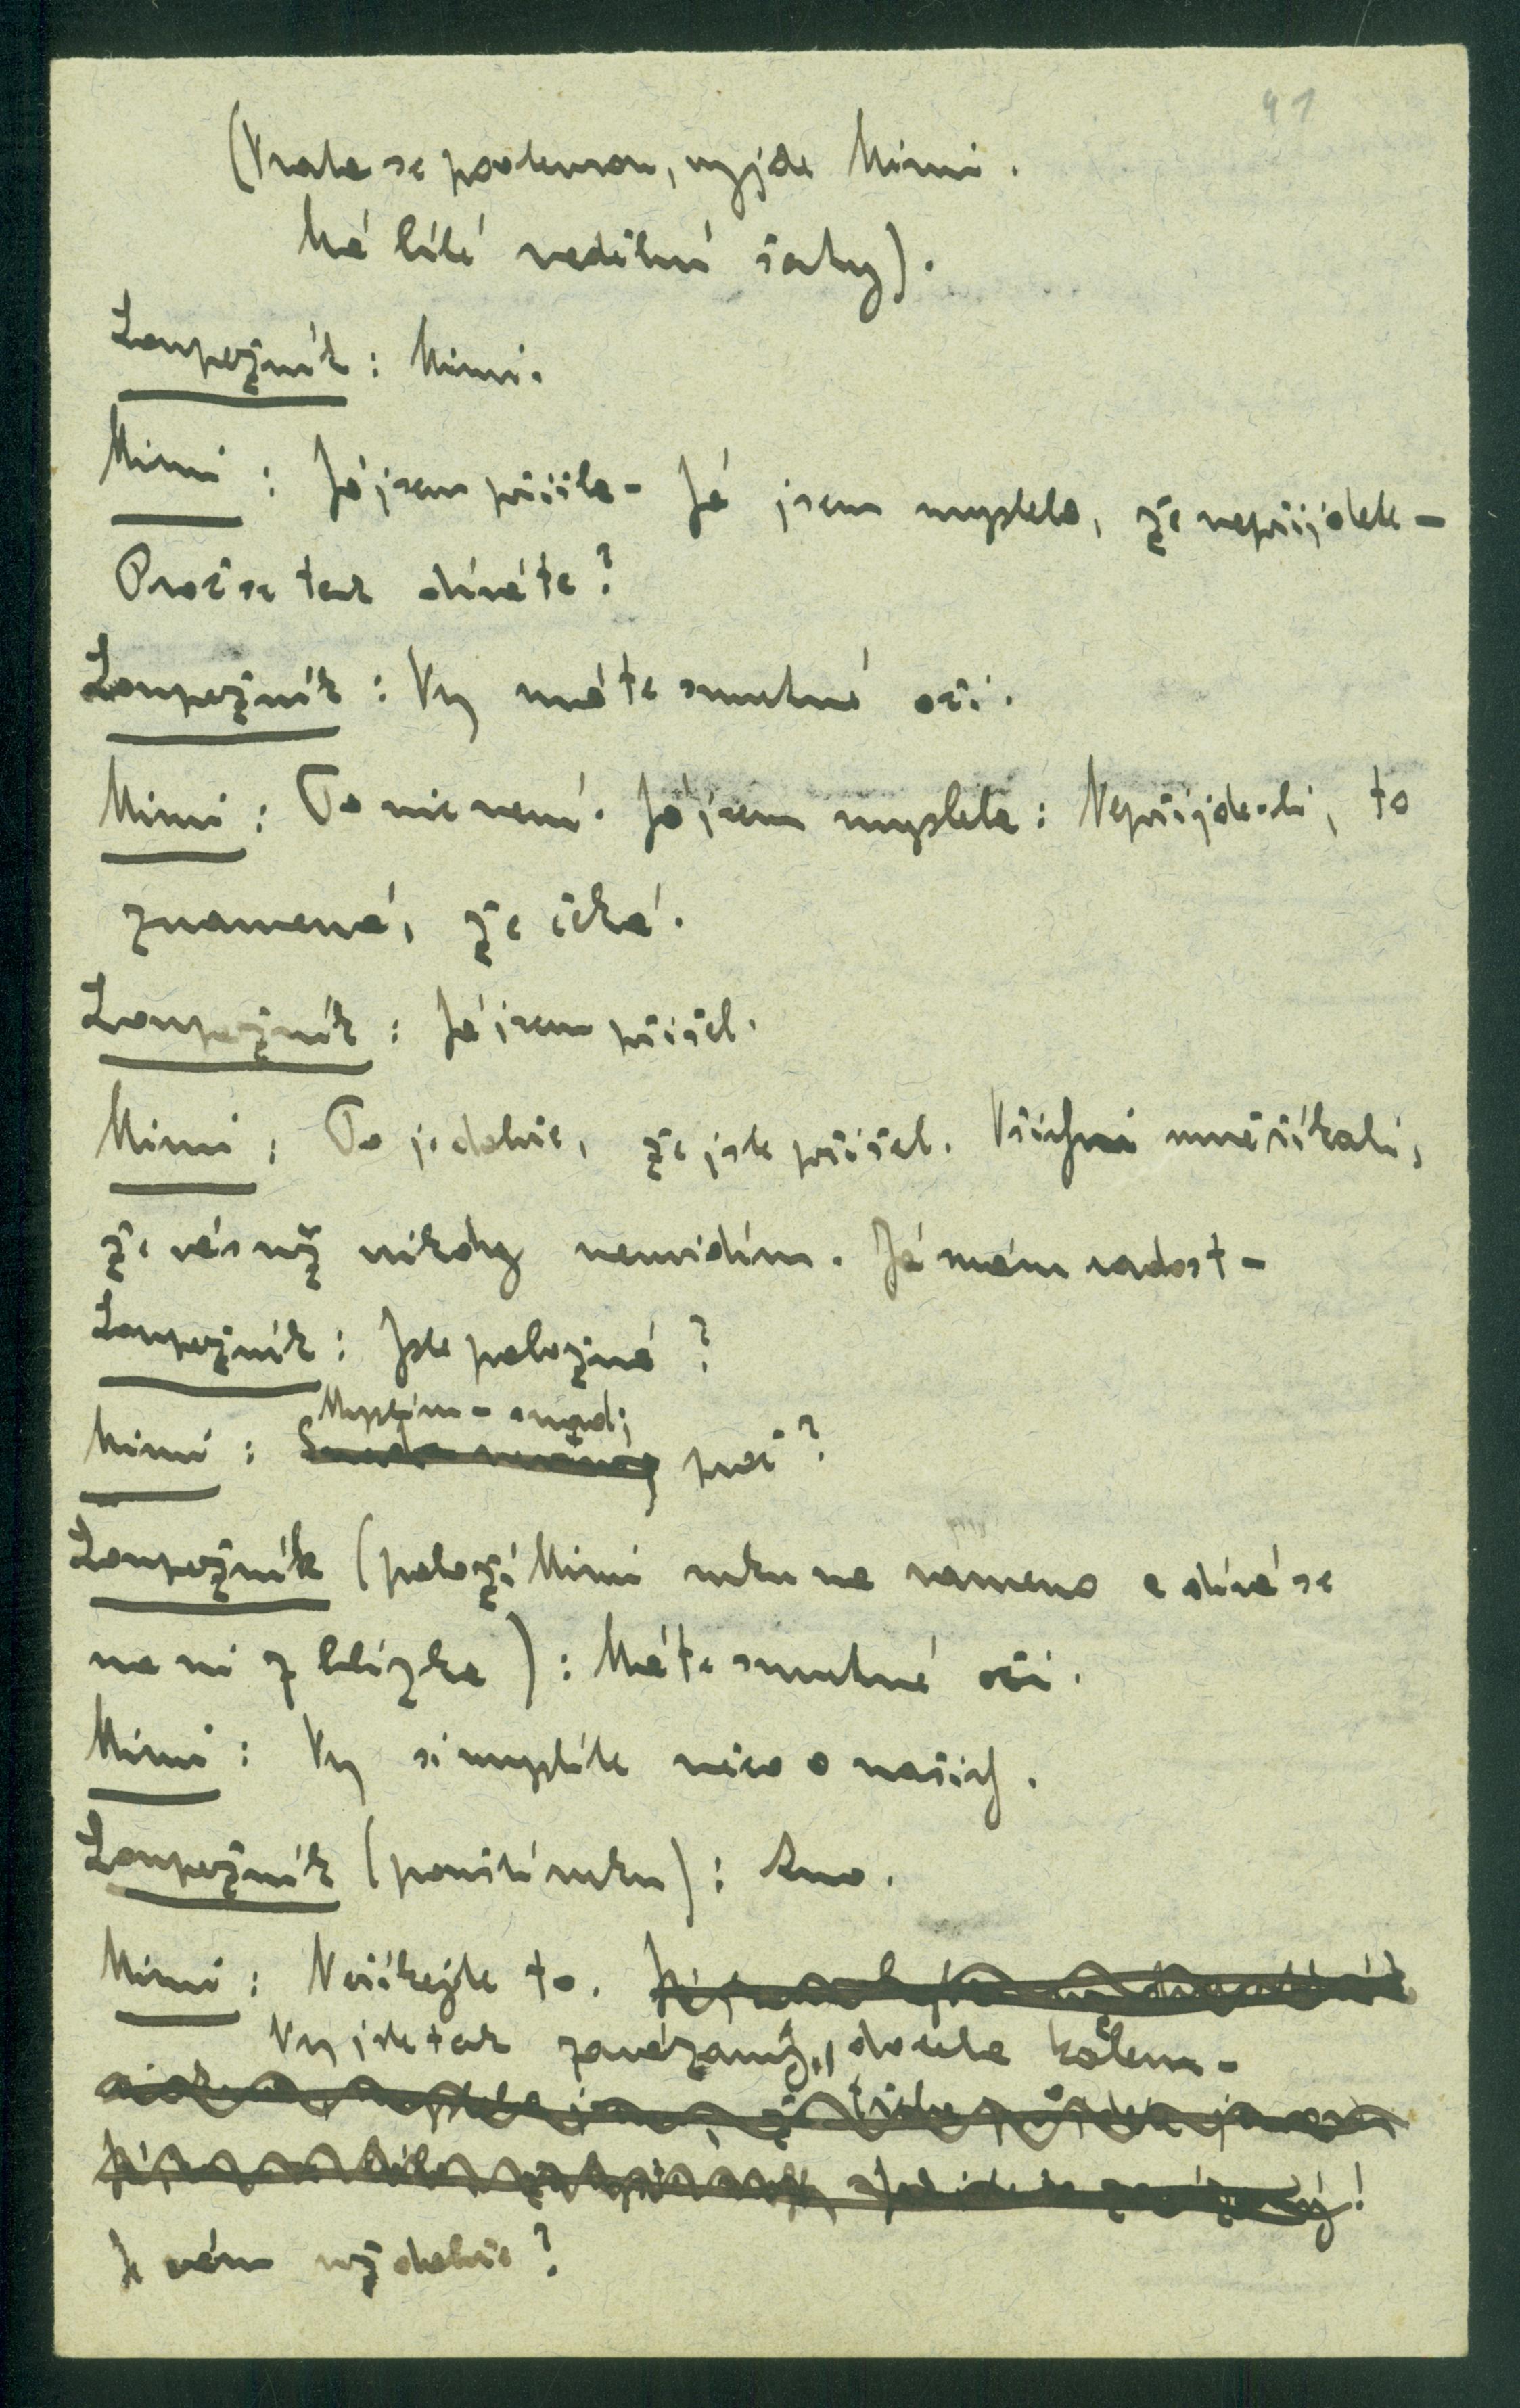 41
(Vrata se pootevrou, vyjde Mimi.
Má bílé nedělní šaty).
Loupežník: Mimi.
Mimi: Já jsem přišla - Já jsem myslela, že nepřijdete -
Proč se tak díváte?
Loupežník: Vy máte smutné oči.
Mimi: To nic není. Já jsem myslela: Nepřijde-li, to
znamená, že čeká.
Loupežník: Já jsem přišel.
Mimi: To je dobře, že jste přišel. Všichni mně říkali,
že vás už nikdy nevidím. Já mám radost -
Loupežník: Jste položná?
Myslím - snad;
Mimi: proč?
Loupežník (položí Mimi ruku na rameno a dívá se
na ni z blízka): Máte smutné oči.
Mimi: Vy si myslíte něco o našich.
Loupežník (pouští ruku): Ano.
Mimi: Neříkejte to.
Vy jste tak zavázaný, docela kolem -
Je vám už dobře?